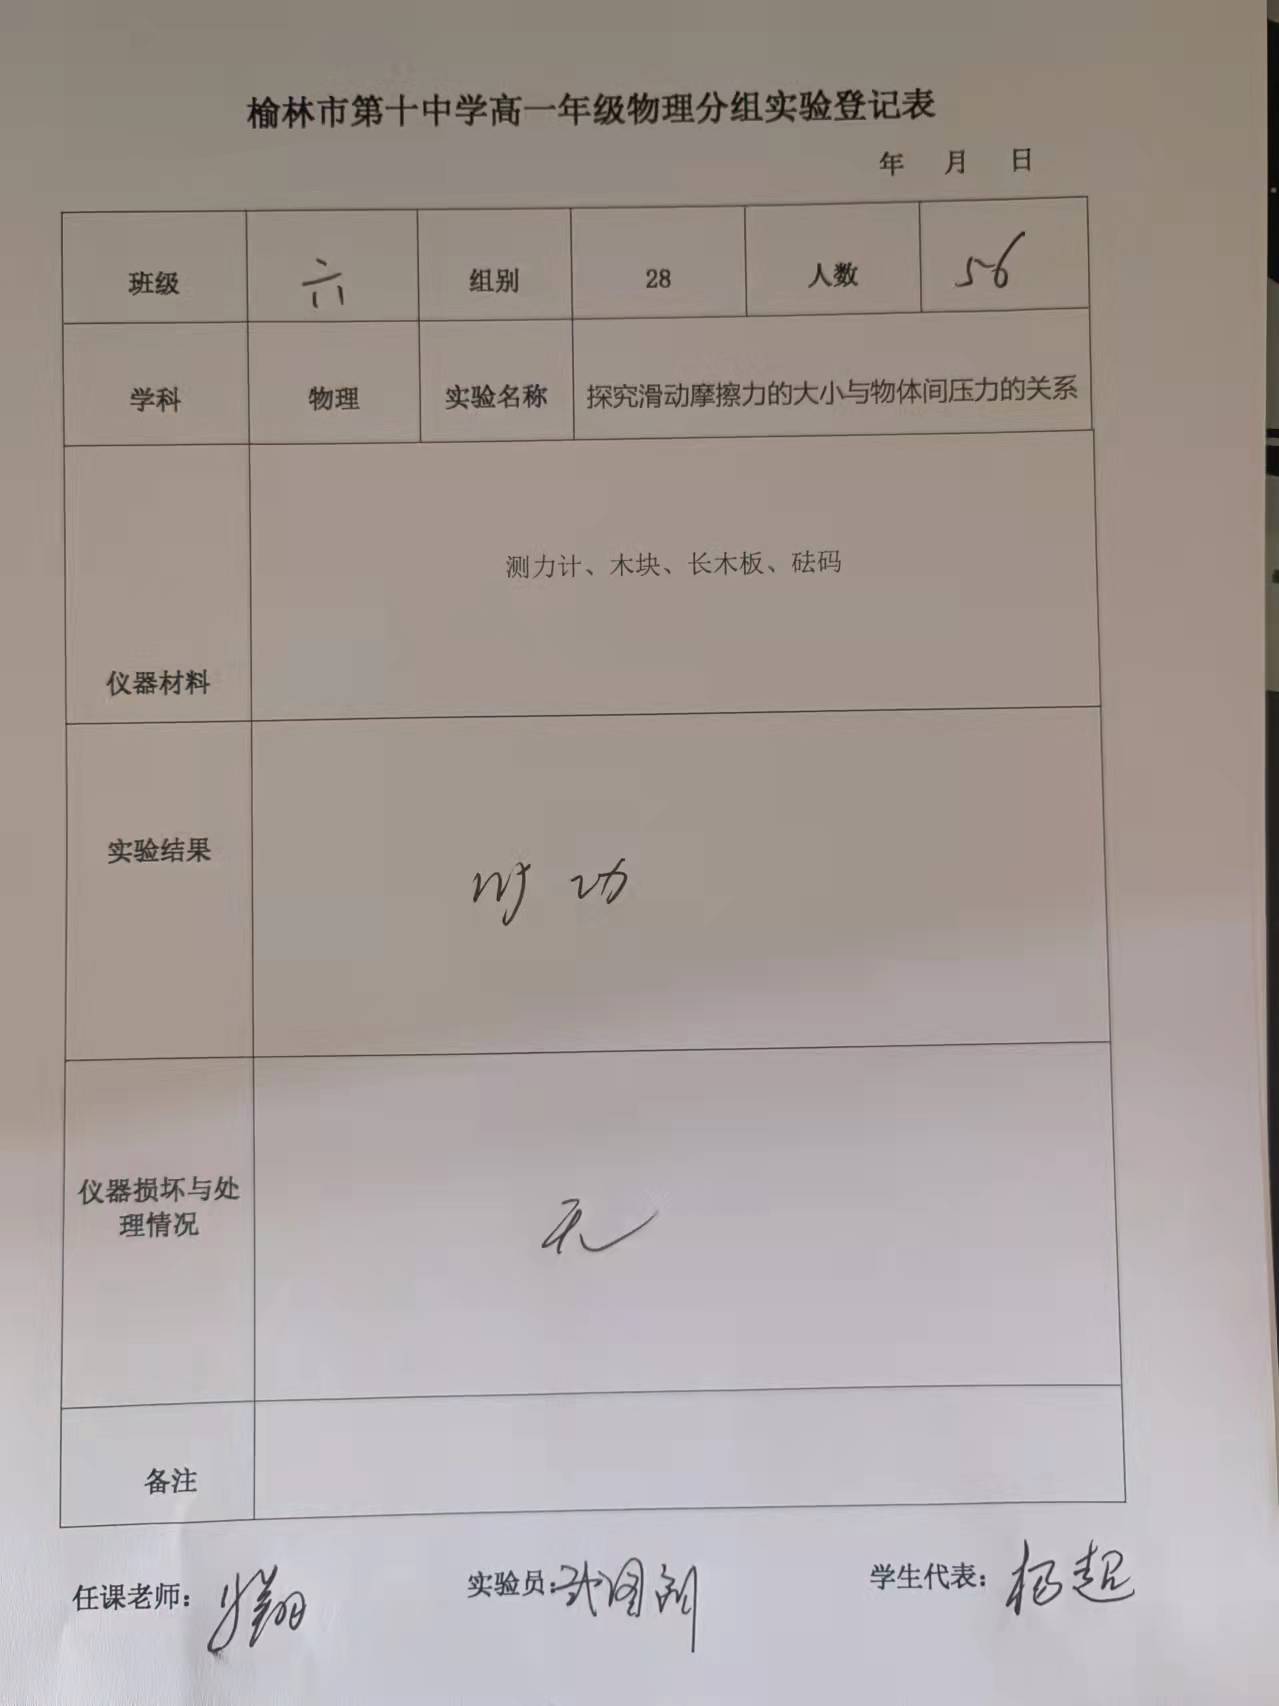 榆林市第十中学高一年级物理分组实验登记表
年 月 日
班级 六 组别 28 人数 56
学科 物理 实验名称 探究滑动摩擦力的大小与物体间压力的关系
测力计、木块、长木板、砝码
仪器材料
实验结果
功
仪器损坏与处
理情况
无
备注
任课老师： 实验员： 学生代表：杨超